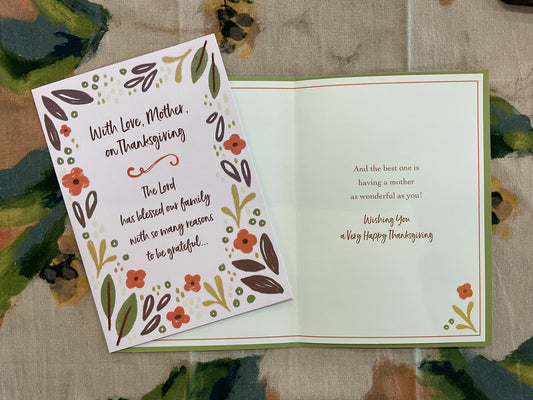 With Love, Mother,
on Thanksgiving
The Lord
has blessed our family
with so many reasons
to be grateful...
And the best one is
having a mother
as wonderful as you!
Wishing You
a Very Happy Thanksgiving